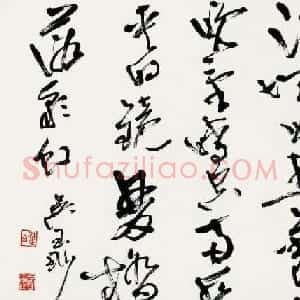 江城如画里山
晓望晴空两水
夹明镜双桥
落彩虹
Shufaziliao.com